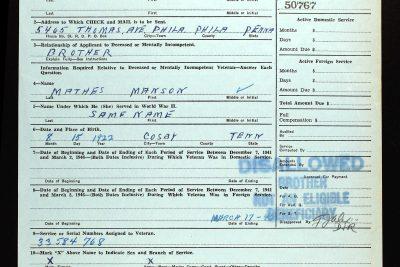 50767
2—Address to Which CHECK and MAIL is to be Sent.
Active Domestic Service
5465 THOMAS, AVE PHILA PHILA PENNA
House No. St., R. D., P. O. Box City—Town County State
Months
Days
3—Relationship of Applicant to Deceased or Mentally Incompetent.
BROTHER
Explain Fully—See Instructions
Amount Due
Active Foreign Service
Information Required Relative to Deceased or Mentally Incompetent Veteran—Answer Each Question.
Months
Days
4—Name
Amount Due
MATHES MANSON ✓
Last First Middle or Initial
Total Amount Due
5—Name Under Which He (She) Served in World War II.
SAME NAME
Last First Middle or Initial
Full
Compensation
6—Date and Place of Birth.
8 15 1922 COSBY TENN
Month Day Year City—Town County State
Audited
By
Service
Computed By
7—Date of Beginning and Date of Ending of Each Period of Service Between December 7, 1941 and March 2, 1946—(Both Dates Inclusive) During Which Veteran Was in Domestic Service.
Amounts
Extended
By
DISALLOWED
BROTHER
NOT ELIGIBLE
BENEFICIARY
Date of Beginning Date of Ending
8—Date of Beginning and Date of Ending of Each Period of Service Between December 7, 1941 and March 2, 1946—(Both Dates Inclusive) During Which Veteran Was in Foreign Service.
Approved For Payment
Date
For A. G.
MARCH 17
For
Date of Beginning Date of Ending
Disapproved
DIR
9—Service or Serial Numbers Assigned to Veteran.
33584768
10—Mark "X" Above Name to Indicate Sex and Branch of Service.
X X